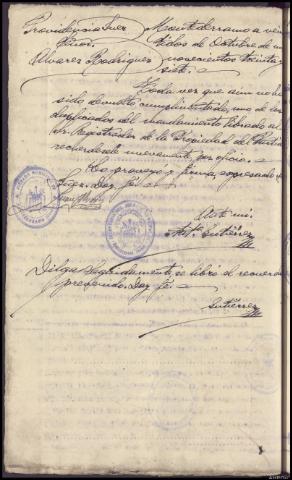 Providencia Juez
Señor
Alvarez Rodriguez
Montederramo a vein
tidos de Octubre de mil
novecientos treinta y
siete.
Toda vez que aun no ha
sido devuelto cumplimentado, uno de los
duplicados del mandamiento librado al
Sr. Registrador de la Propiedad del Partido
recuerdesele nuevamente por oficio.
Lo proveyo y firma, expresado
Juez: Doy fé.
Ante mi:
Gutiérrez
Diligª Seguidamente, se libró el recuerdo
prevenido. Doy fé.
Gutiérrez